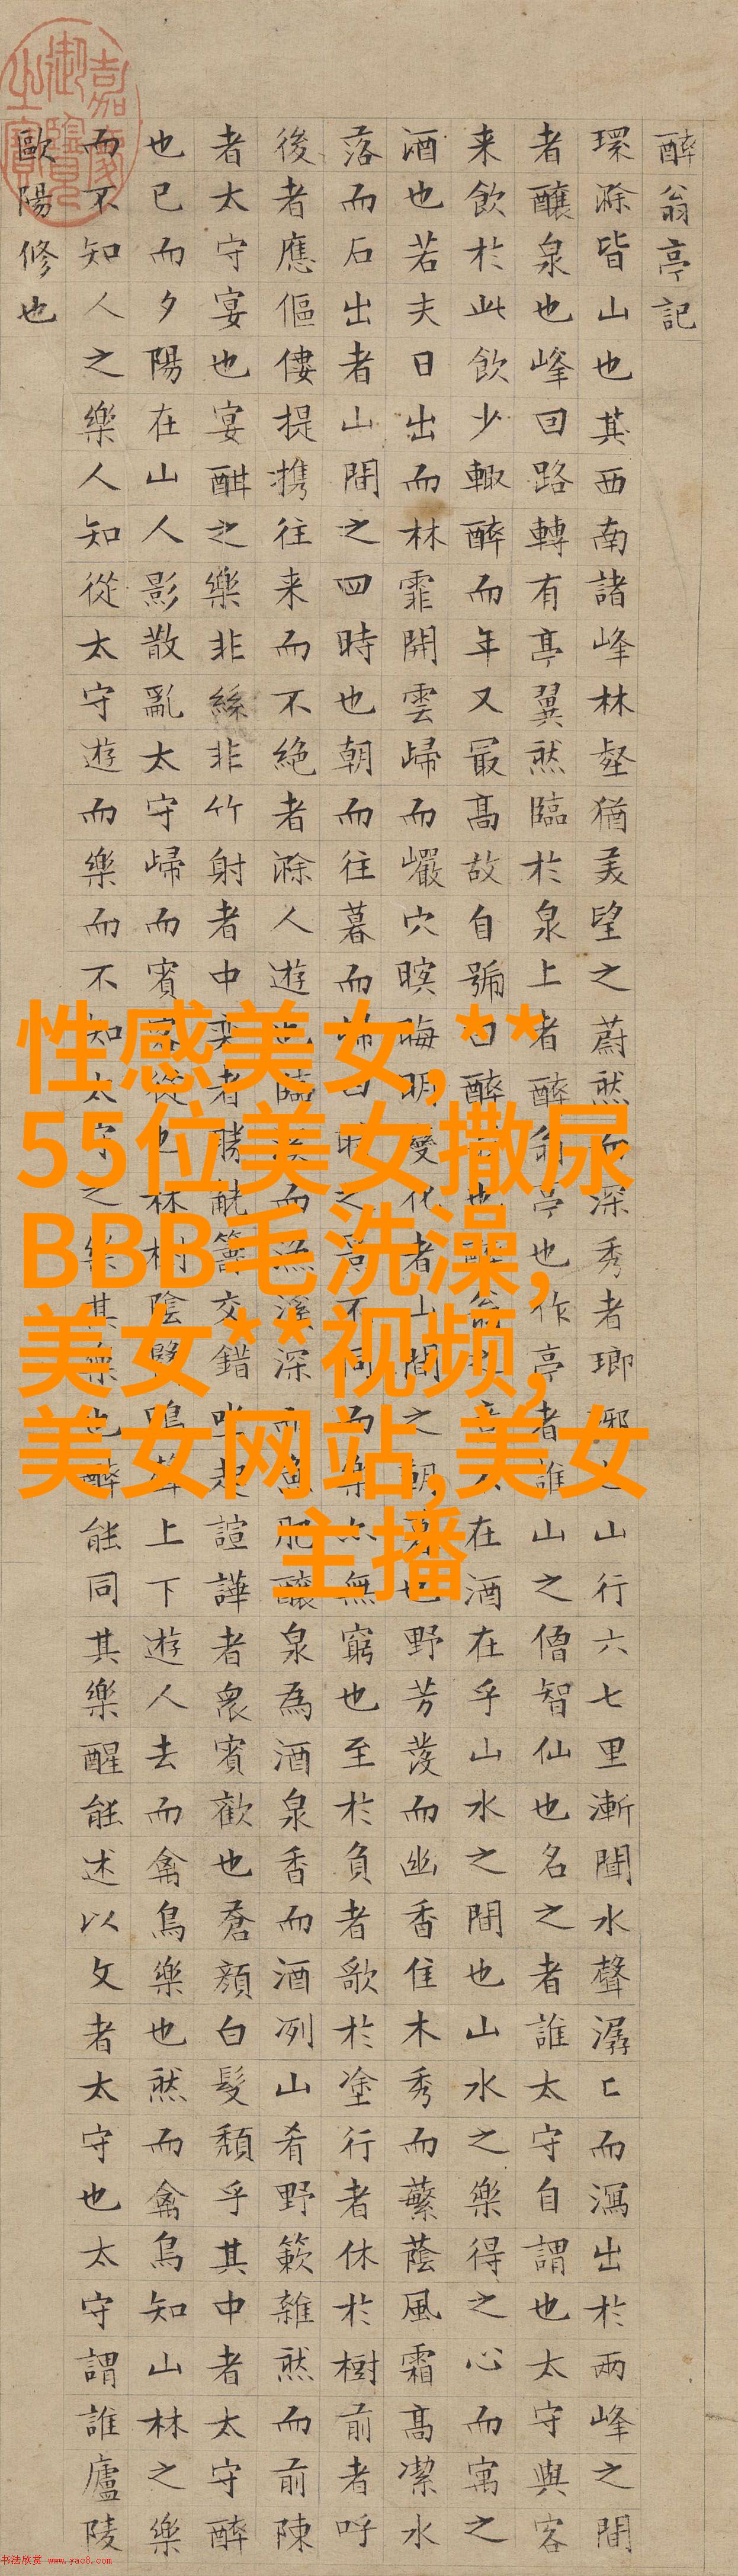 醉翁亭記
環滁皆山也其西南諸峰林壑猶美望之蔚然而深秀者瑯琊之山行六七里漸聞水聲潺匕而瀉出於兩峰之間
者釀泉也峰回路轉有亭翼然臨於泉上者醉翁亭也作亭者誰山之僧智仙也名之者誰太守自謂也太守與客
来飲於此飲少輒醉而年又最高故自號曰醉也醉翁之在酒在乎山水之間也山水之樂得之心而寓之
酒也若夫日出而林霏開雲歸而巖穴暝晦明變化者山間之朝也野芳發而幽香佳木秀而繁蔭風霜高潔水
落而石出者山間之四時也朝而往暮而歸四時之景不同而樂亦無窮也至於負者歌於塗行者休於樹前者呼
後者應傴僂提攜往来而不絕者滁人遊也臨溪而漁溪深而魚肥釀泉為酒泉香而酒冽山肴野簌雜然而前陳
者太守宴也宴酣之樂非絲非竹射者中奕者勝觥籌交錯坐起諠譁者衆賓歡也蒼顏白髮頹乎其中者太守醉
也已而夕陽在山人影散亂太守歸而賓客從也林樹陰翳鳴聲上下遊人去而禽鳥樂也然而禽鳥知山林之樂
而不知人之樂人知從太守遊而樂而不知太守之樂其樂也醉能同其樂醒能述以文者太守也太守謂誰廬陵
歐陽修也
性感美女,**
55位美女撒尿
BBB毛洗澡,
美女**视频,
美女网站,美女
主播
书法欣赏 www.yac8.com